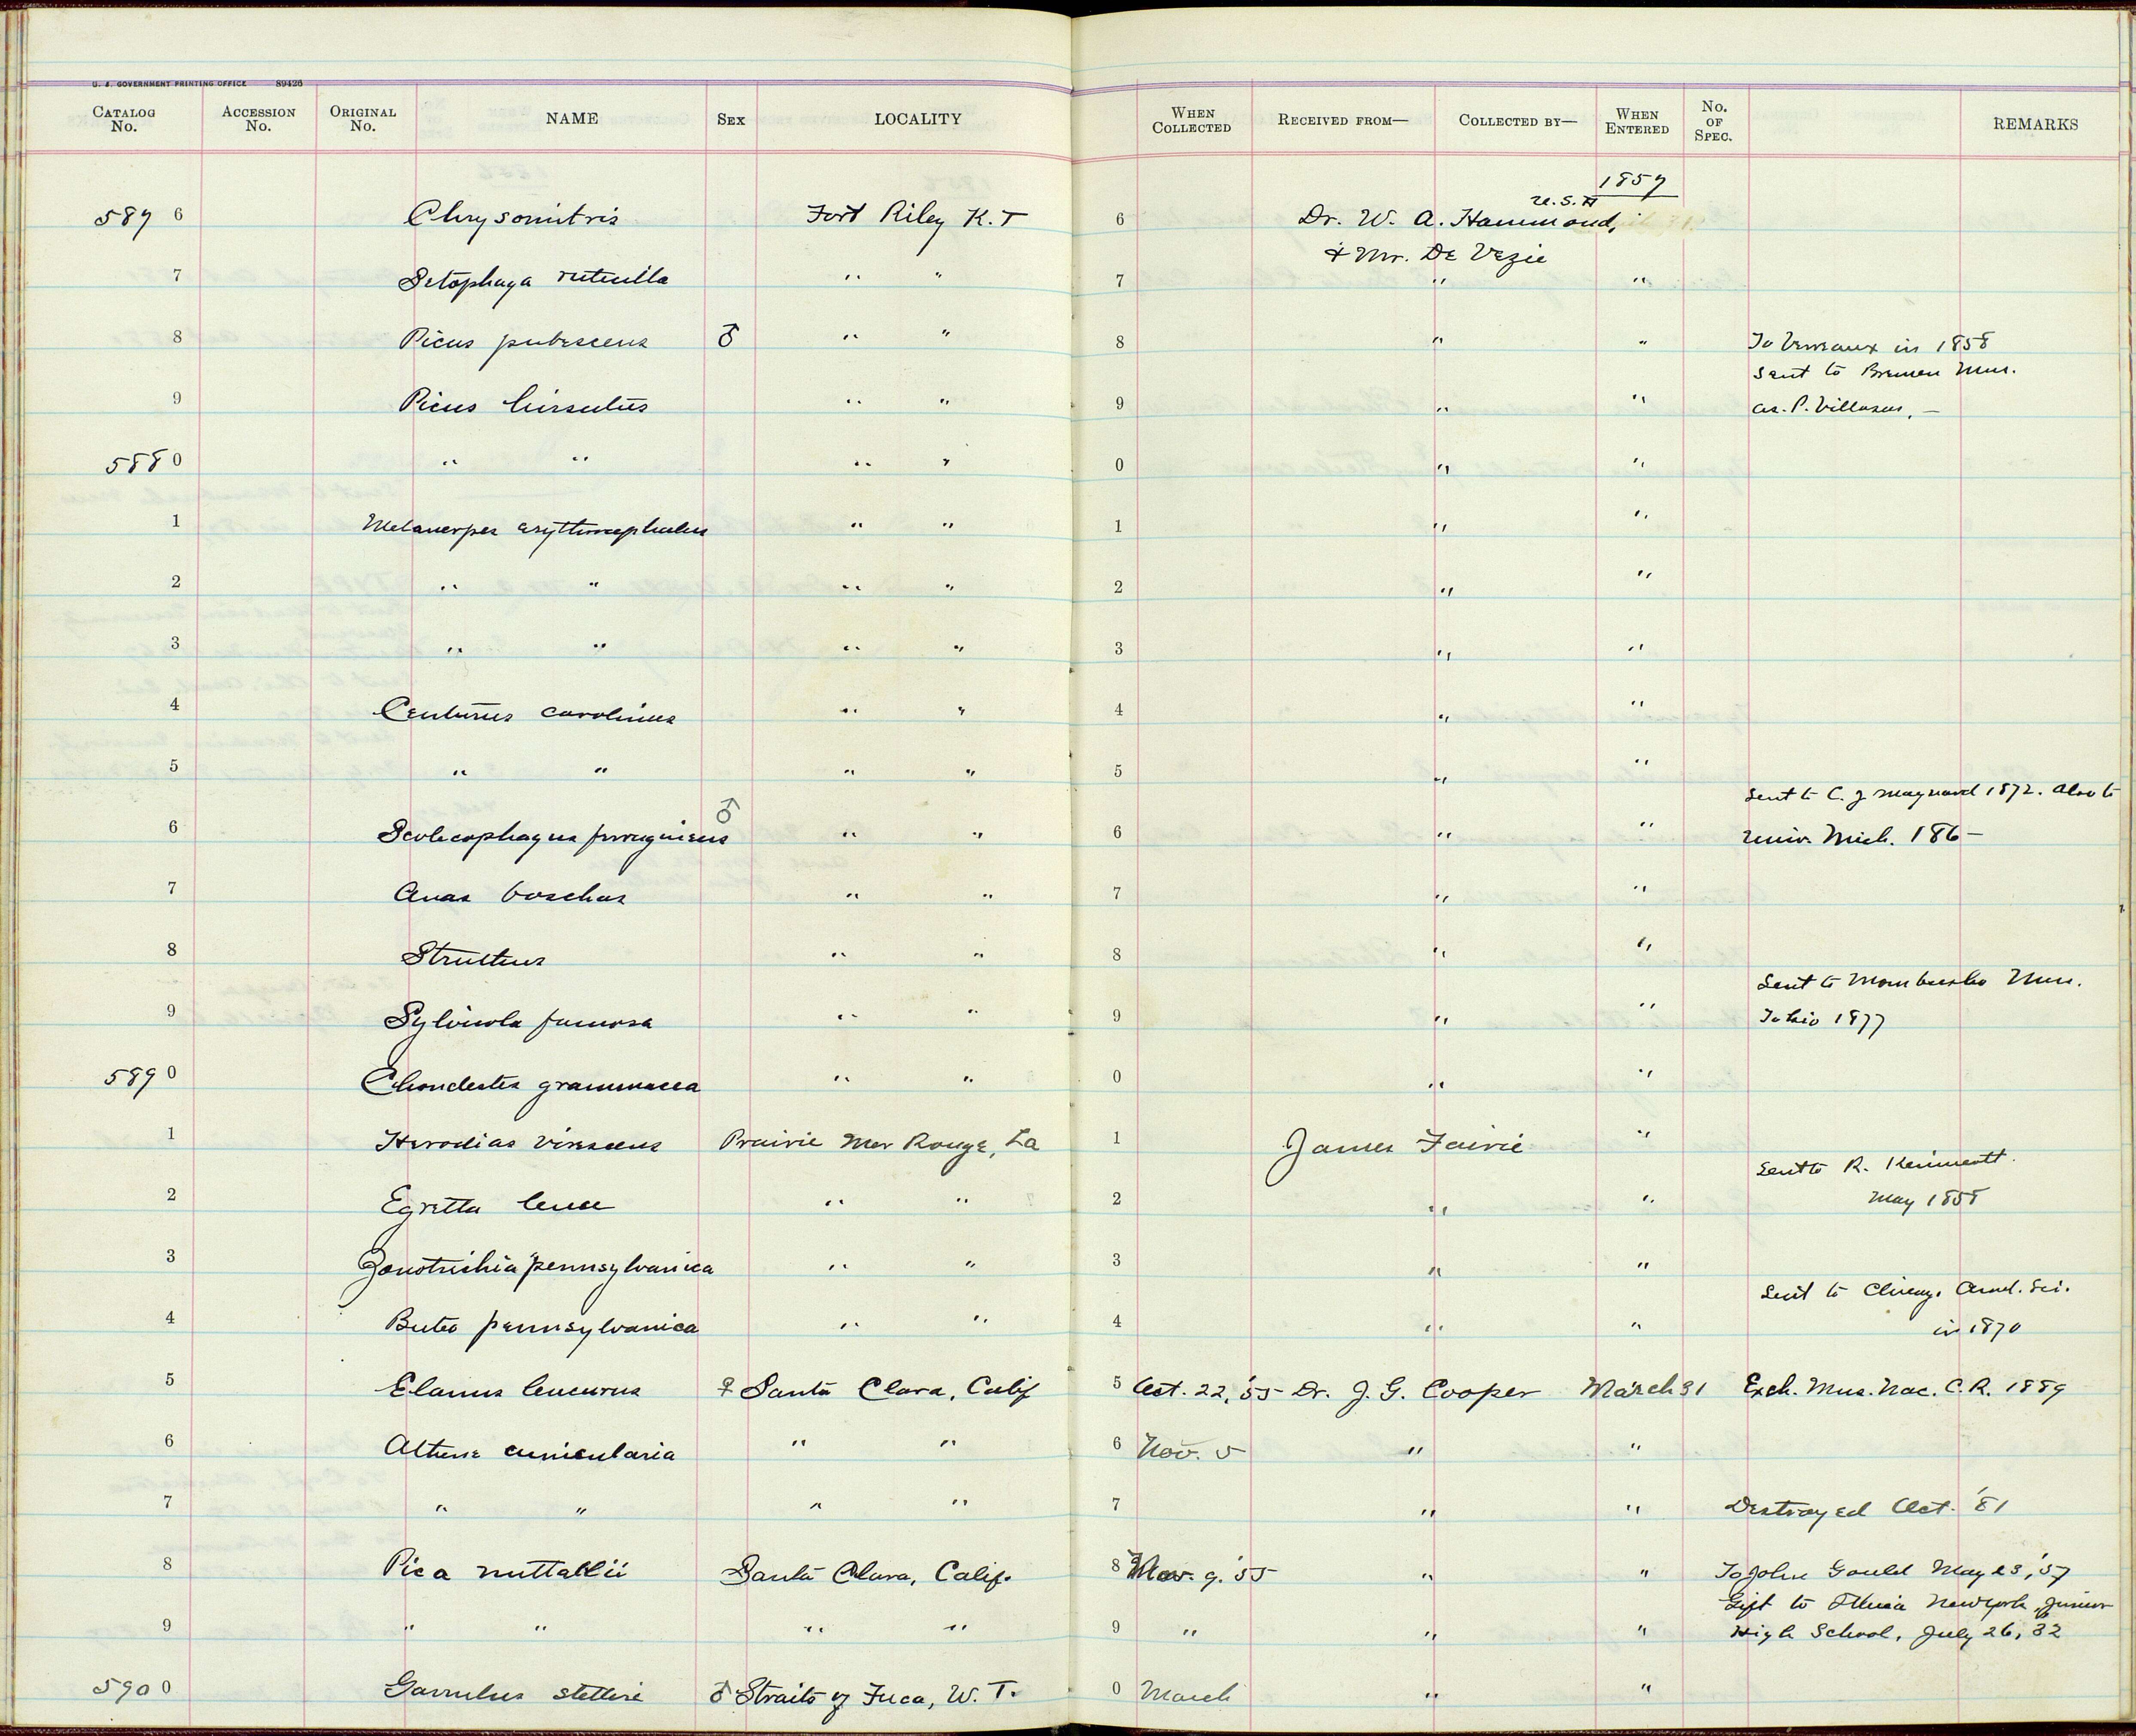 U. S. GOVERNMENT PRINTING OFFICE 89426
CATALOG No. ACCESSION No. ORIGINAL No. NAME SEX LOCALITY WHEN COLLECTED RECEIVED FROM— COLLECTED BY— WHEN ENTERED No. OF SPEC. REMARKS
1857
U.S.A
587 6 Chrysomitris Fort Riley K.T 6 Dr. W. A. Hammond,
& Mr. De Vezie
7 Setophaga ruticilla " " 7 " "
8 Picus pubescens ♂ " " 8 " " To Verreaux in 1858
Sent to Bremen Mus.
9 Picus hirsutus " " 9 " " as. P. Villosus, —
588 0 " " " " 0 " "
1 Melanerpes erythrocephalus " " 1 " "
2 " " " " 2 " "
3 " " " " 3 " "
4 Centurus carolinus " " 4 " "
5 " " " " 5 " "
Sent to C. J Maynard 1872. Also to
6 Scolecophagus ferrugineus ♂ " " 6 " " Univ. Mich. 186—
7 Anas boschas " " 7 " "
8 Struthus " " 8 " "
Sent to Mombusho Mus.
9 Sylvicola fumosa " " 9 " " Tokio 1877
589 0 Chondestes grammaca " " 0 " "
1 Herodias virescens Prairie Mer Rouge, La 1 James Fairie "
Sent to R. Kennicott.
2 Egretta leuce " " 2 " " May 1858
3 Zonotrichia pennsylvanica " " 3 " "
Sent to Chicag. Acad. Sci.
4 Buteo pennsylvanica " " 4 " " in 1870
5 Elanus leucurus ♀ Santa Clara, Calif 5 Oct. 22, '55 Dr. J. G. Cooper March 31 Exch. Mus. Nac. C.R. 1889
6 Athene cunicularia " " 6 Nov. 5 " "
7 " " " " 7 " " Destroyed Oct. '81
8 Pica nuttallii Santa Clara, Calif. 8 Nov. 9. '55 " " To John Gould May 23, '57
Gift to Ithica New York, Junior
9 " " " " 9 " " " High School, July 26, '32
590 0 Garrulus stelleri ♂ Straits of Fuca, W. T. 0 March " "